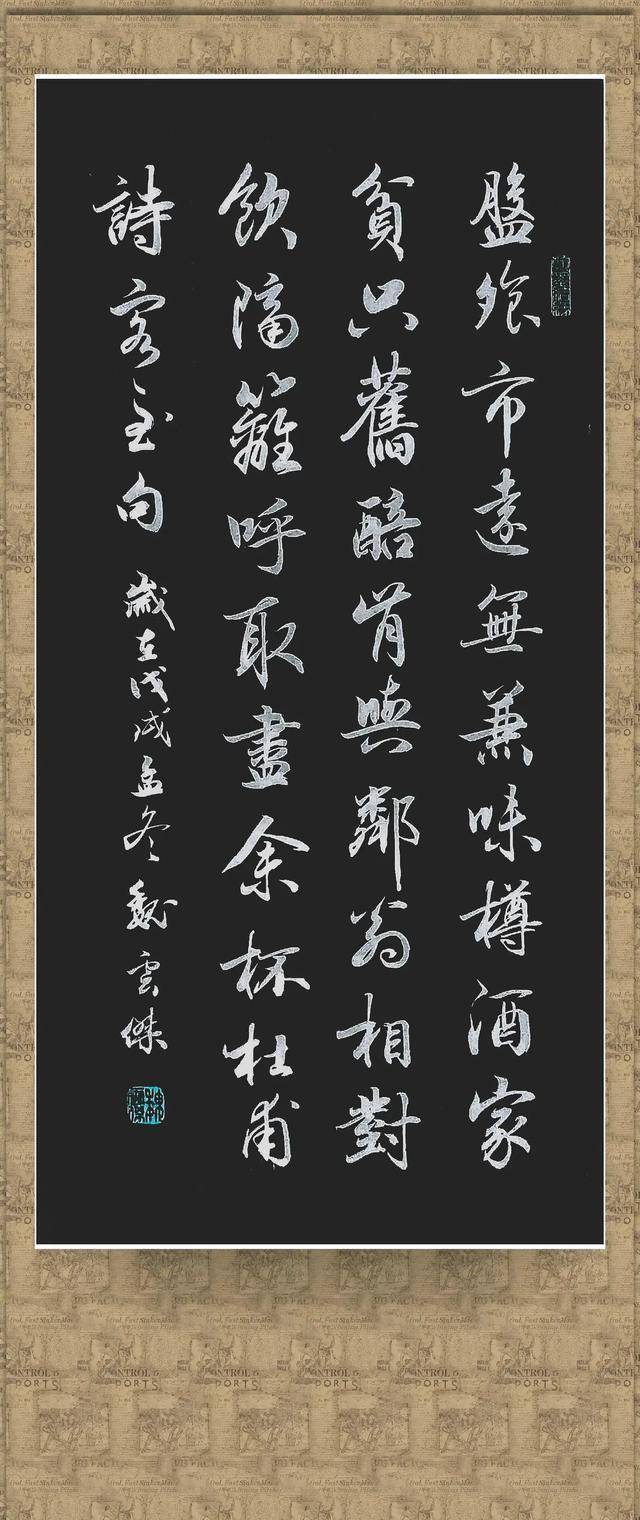 盤飧市遠無兼味樽酒家
貧只舊醅肯與鄰翁相對
飲隔籬呼取盡余杯杜甫
詩客至句 歲在戊戌孟冬魏雲傑